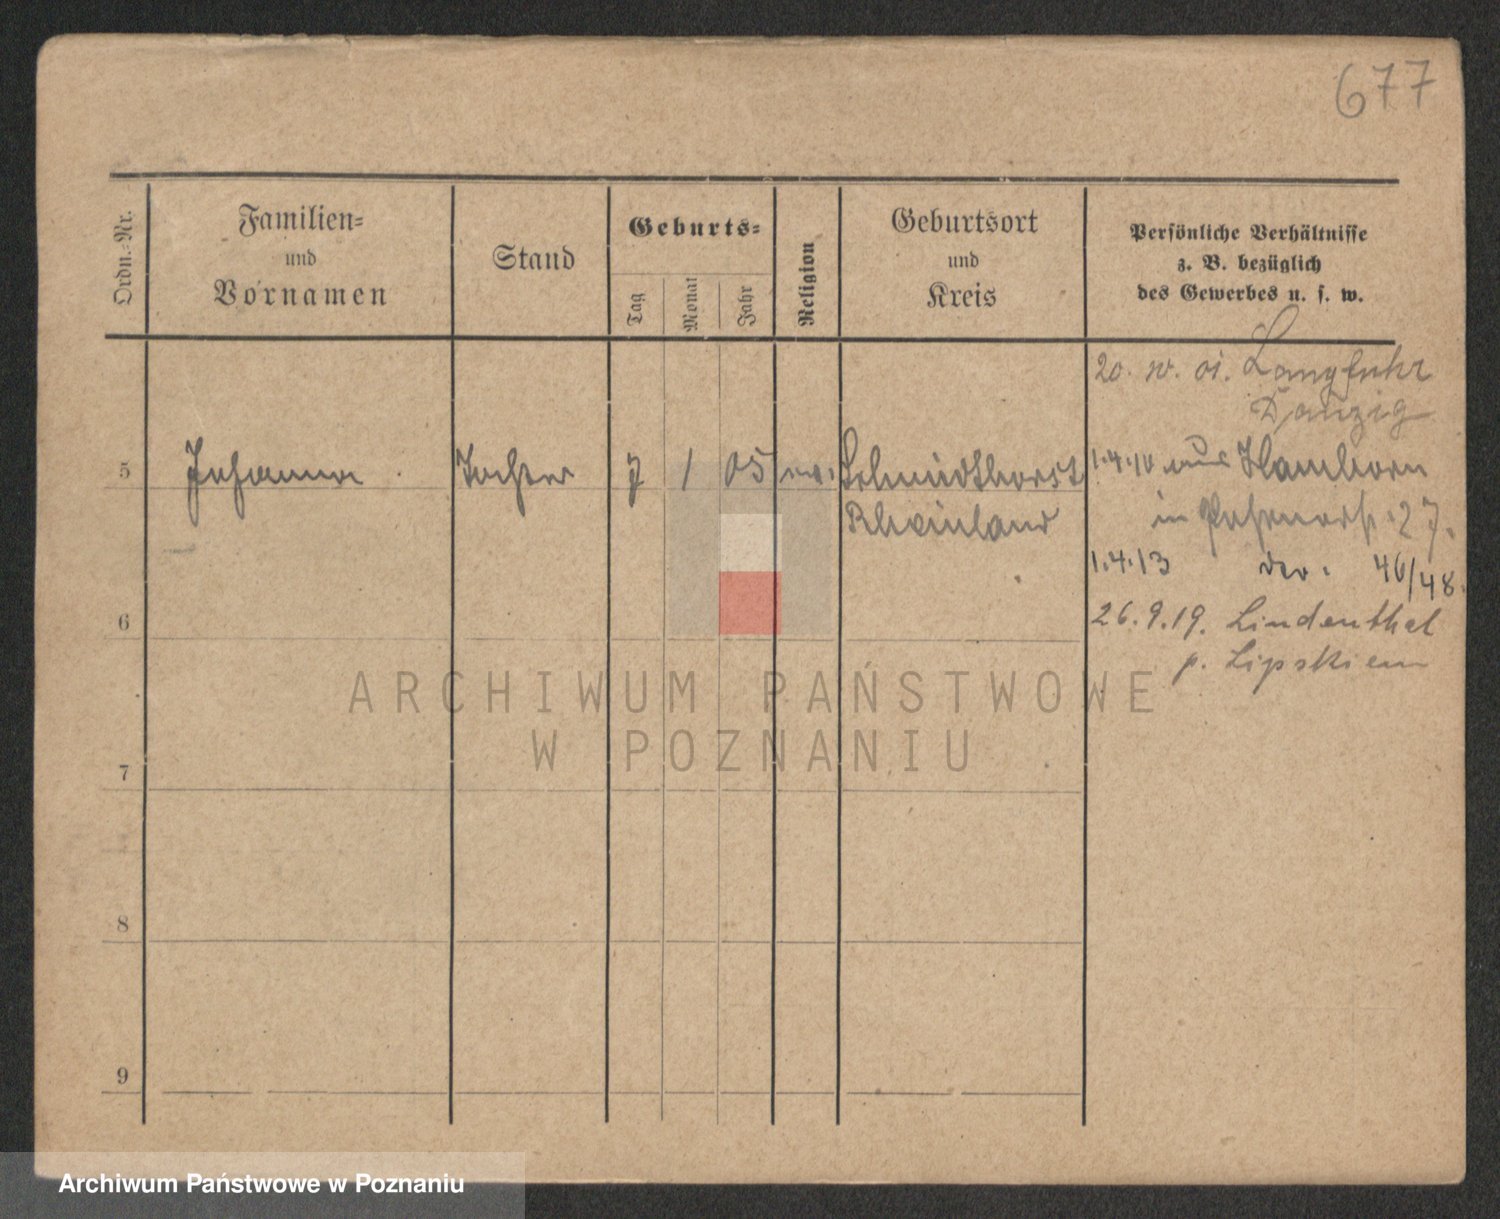 677
Ordn.-Nr.
Familien-
und
Vornamen
Stand
Geburts-
Tag
Monat
Jahr
Religion
Geburtsort
und
Kreis
Persönliche Verhältnisse
z. B. bezüglich
des Gewerbes u. s. w.
20. Langfuhr
Danzig
5 Johanna Tochter 7 1 05 Schmidthorst 1.4.10 aus Hamborn
Rheinland in 27.
1.4.13 46/48.
6 26.9.19. Lindenthal
p. Lipskiem
7
8
9
ARCHIWUM PAŃSTWOWE
W POZNANIU
Archiwum Państwowe w Poznaniu